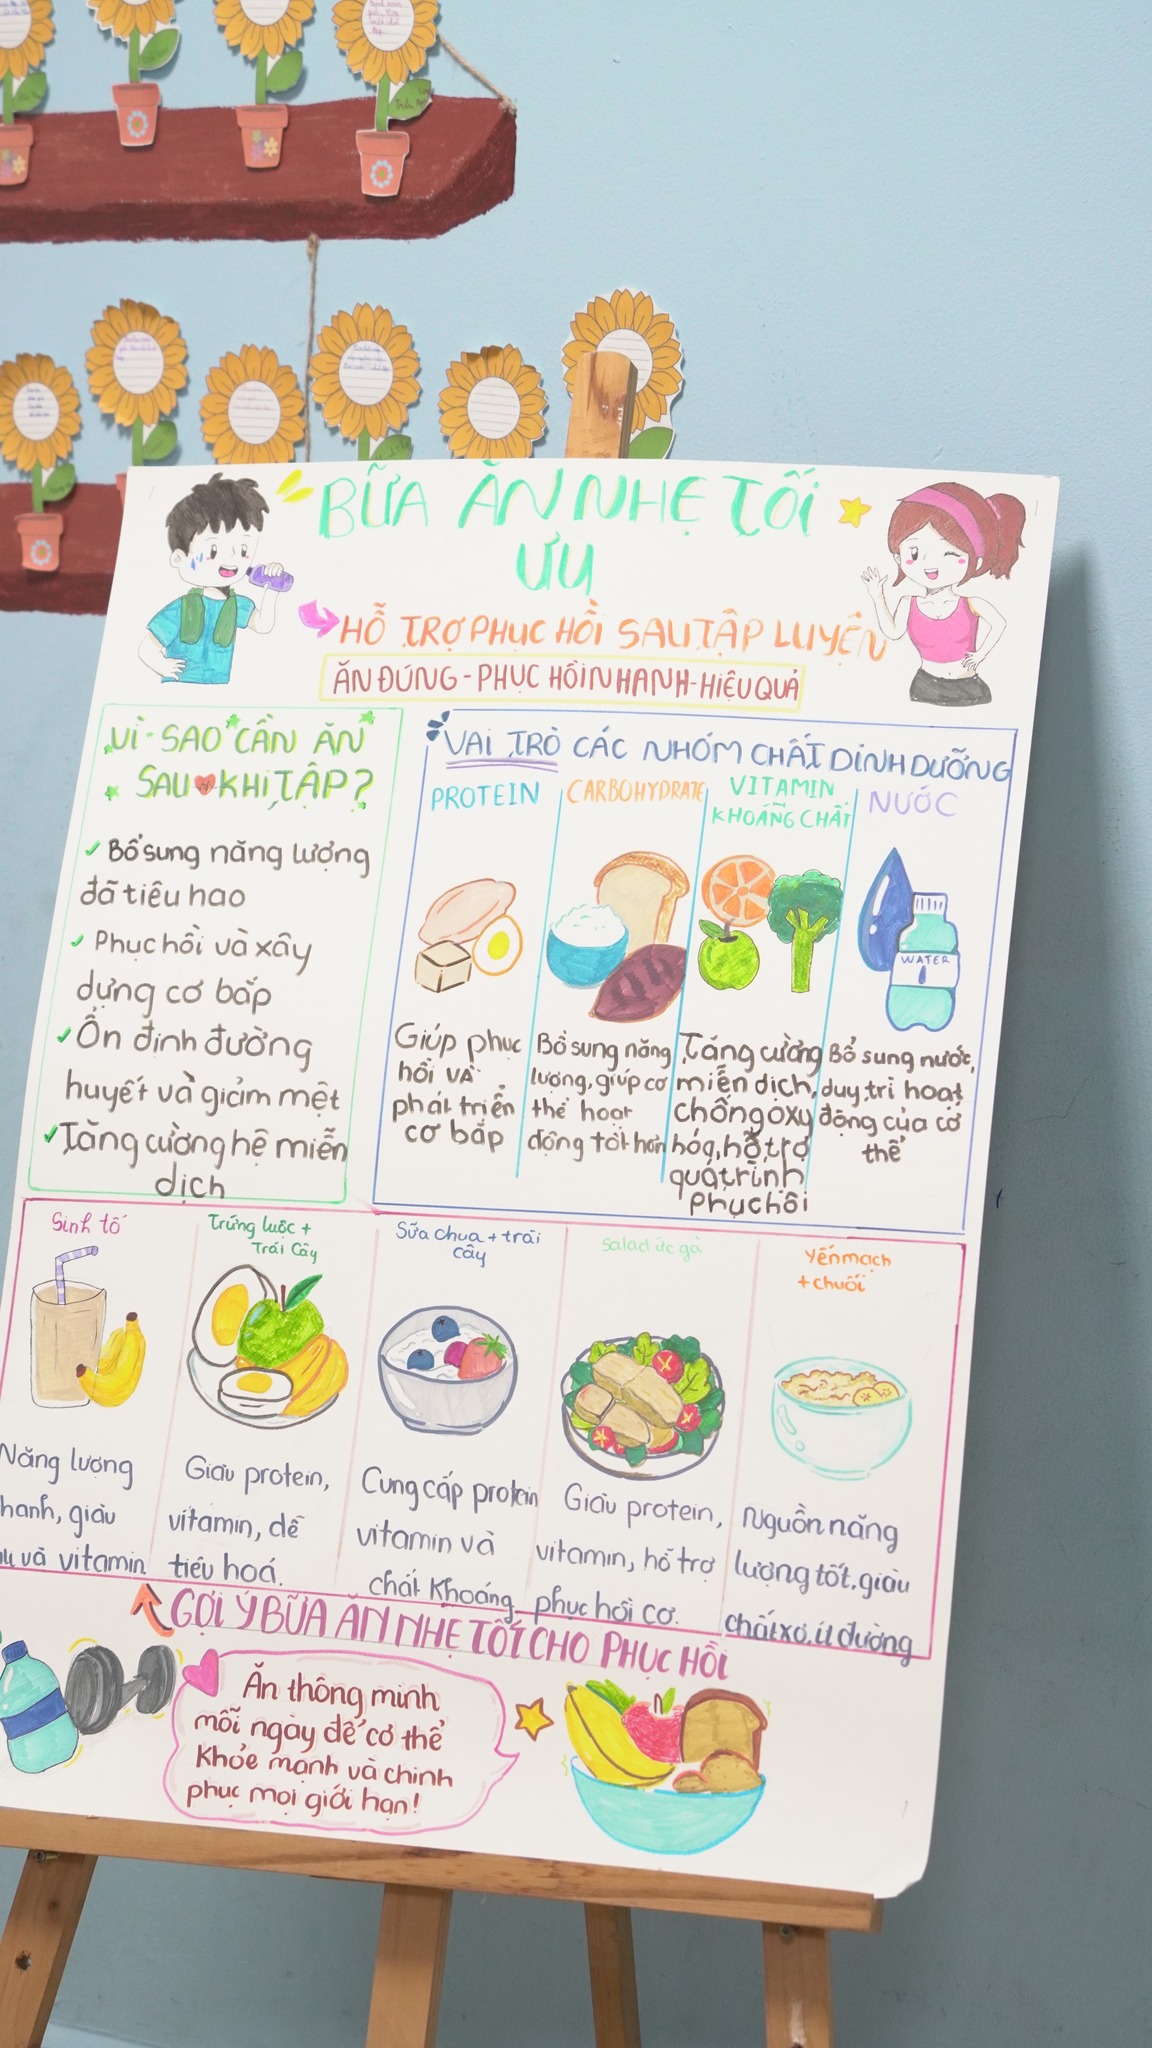 BỮA ĂN NHẸ TỐI
ƯU
HỖ TRỢ PHỤC HỒI SAU TẬP LUYỆN
ĂN ĐÚNG - PHỤC HỒI NHANH - HIỆU QUẢ
VÌ SAO CẦN ĂN
SAU KHI TẬP?
Bổ sung năng lượng
đã tiêu hao
Phục hồi và xây
dựng cơ bắp
Ổn định đường
huyết và giảm mệt
Tăng cường hệ miễn
dịch
VAI TRÒ CÁC NHÓM CHẤT DINH DƯỠNG
PROTEIN
Giúp phục
hồi và
phát triển
cơ bắp
CARBOHYDRATE
Bổ sung năng
lượng, giúp cơ
thể hoạt
động tốt hơn
VITAMIN
KHOÁNG CHẤT
Tăng cường
miễn dịch,
chống oxy
hóa, hỗ trợ
quá trình
phục hồi
NƯỚC
WATER
Bổ sung nước,
duy trì hoạt
động của cơ
thể
Sinh tố
Năng lượng
hanh, giàu
và vitamin
Trứng luộc +
Trái Cây
Giàu protein,
vitamin, dễ
tiêu hoá.
Sữa chua + trái
cây
Cung cấp protein
vitamin và
chất khoáng
Salad ức gà
Giàu protein,
vitamin, hỗ trợ
phục hồi cơ.
Yến mạch
+ chuối
Nguồn năng
lượng tốt, giàu
chất xơ, ít đường
GỢI Ý BỮA ĂN NHẸ TỐT CHO PHỤC HỒI
Ăn thông minh
mỗi ngày để cơ thể
khỏe mạnh và chinh
phục mọi giới hạn!